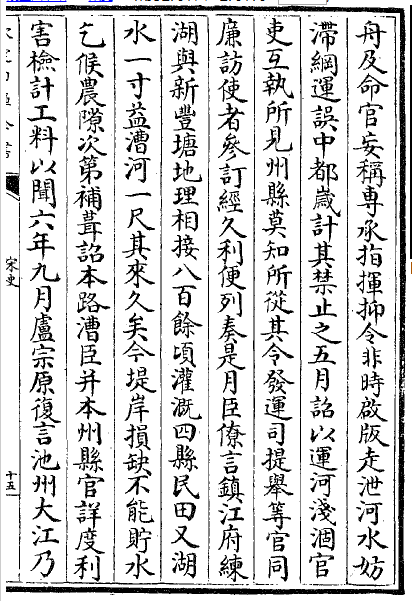 舟及命官妄稱専承指揮抑令非時啟版走泄河水妨
滯綱運誤中都嵗計其禁止之五月詔以運河淺涸官
吏互執所見州縣莫知所從其令發運司提舉等官同
廉訪使者參訂經久利便列奏是月臣僚言鎮江府練
湖與新豐塘地理相接八百餘頃灌溉四縣民田又湖
水一寸益漕河一尺其來久矣今堤岸損缺不能貯水
乞候農隙次第補葺詔本路漕臣并本州縣官詳度利
害檢計工料以聞六年九月盧宗原復言池州大江乃
宋史
十五